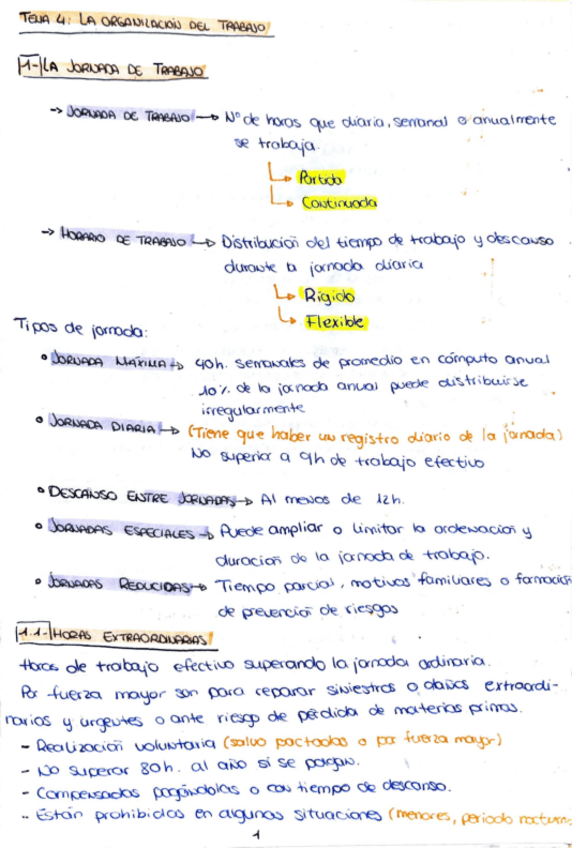 TEMA 4: LA ORGANIZACIÓN DEL TRABAJO
1- LA JORNADA DE TRABAJO
→ JORNADA DE TRABAJO → Nº de horas que diaria, semanal o anualmente
se trabaja.
→ Partida
→ Continuada
→ HORARIO DE TRABAJO → Distribución del tiempo de trabajo y descanso
durante la jornada diaria
→ Rígido
→ Flexible
Tipos de jornada:
• JORNADA MÁXIMA → 40h. semanales de promedio en cómputo anual
10% de la jornada anual puede distribuirse
irregularmente
• JORNADA DIARIA → (Tiene que haber un registro diario de la jornada)
No superior a 9h de trabajo efectivo
• DESCANSO ENTRE JORNADAS → Al menos de 12h.
• JORNADAS ESPECIALES → Puede ampliar o limitar la ordenación y
duración de la jornada de trabajo.
• JORNADAS REDUCIDAS → Tiempo parcial, motivos familiares o formación
de prevención de riesgos
1.1- HORAS EXTRAORDINARIAS
Horas de trabajo efectivo superando la jornada ordinaria.
Por fuerza mayor son para reparar siniestros o daños extraordi-
narios y urgentes o ante riesgo de pérdida de materias primas.
- Realización voluntaria (salvo pactadas o por fuerza mayor)
- No superar 80h. al año si se pagan.
- Compensadas pagándolas o con tiempo de descanso.
- Están prohibidas en algunas situaciones (menores, periodo nocturno
1